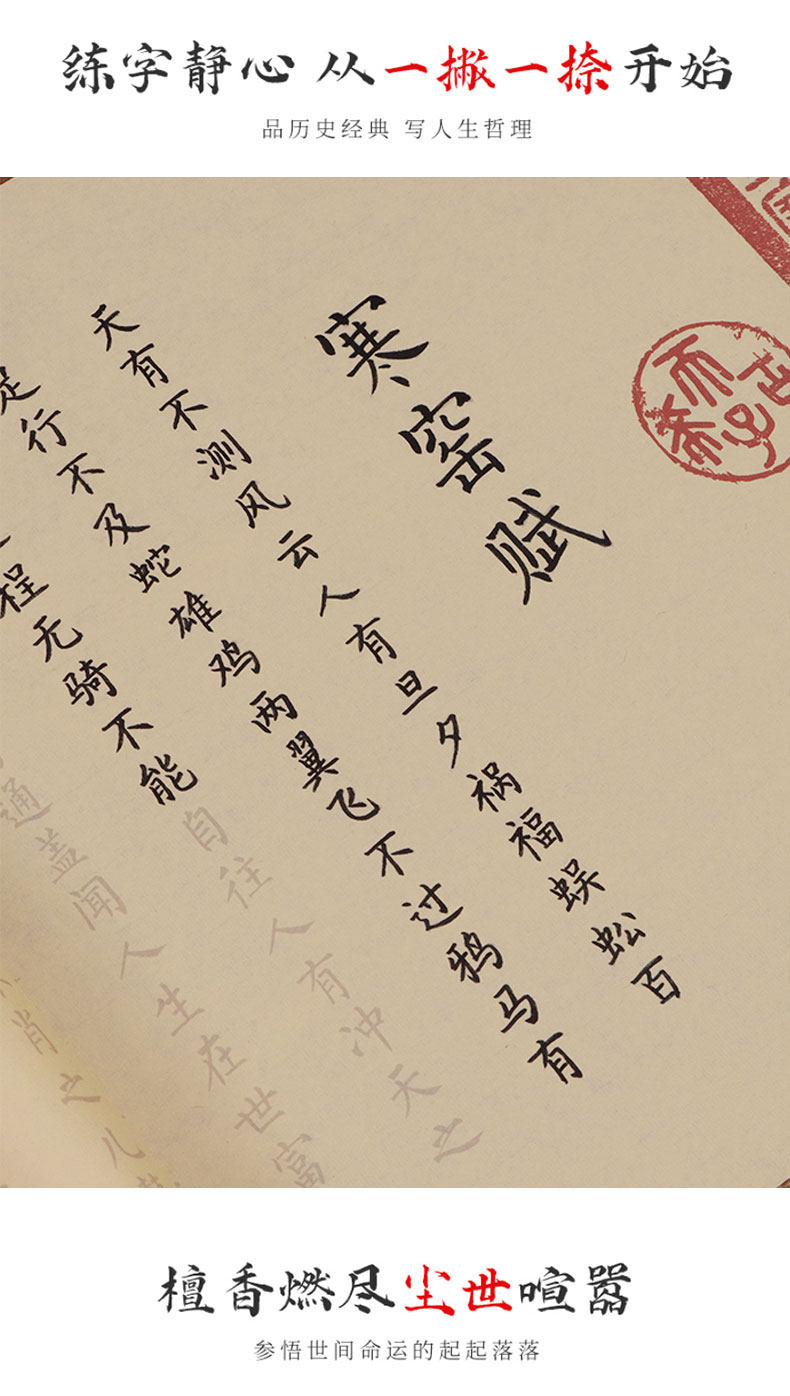 练字静心 从一撇一捺开始
品历史经典 写人生哲理
寒窑赋
天有不测风云人有旦夕祸福蜈蚣百
足行不及蛇雄鸡两翼飞不过鸦马有
程无骑不能
自往人有冲天之
通盖闻人生在世富
肖之儿
檀香燃尽尘世喧嚣
参悟世间命运的起起落落